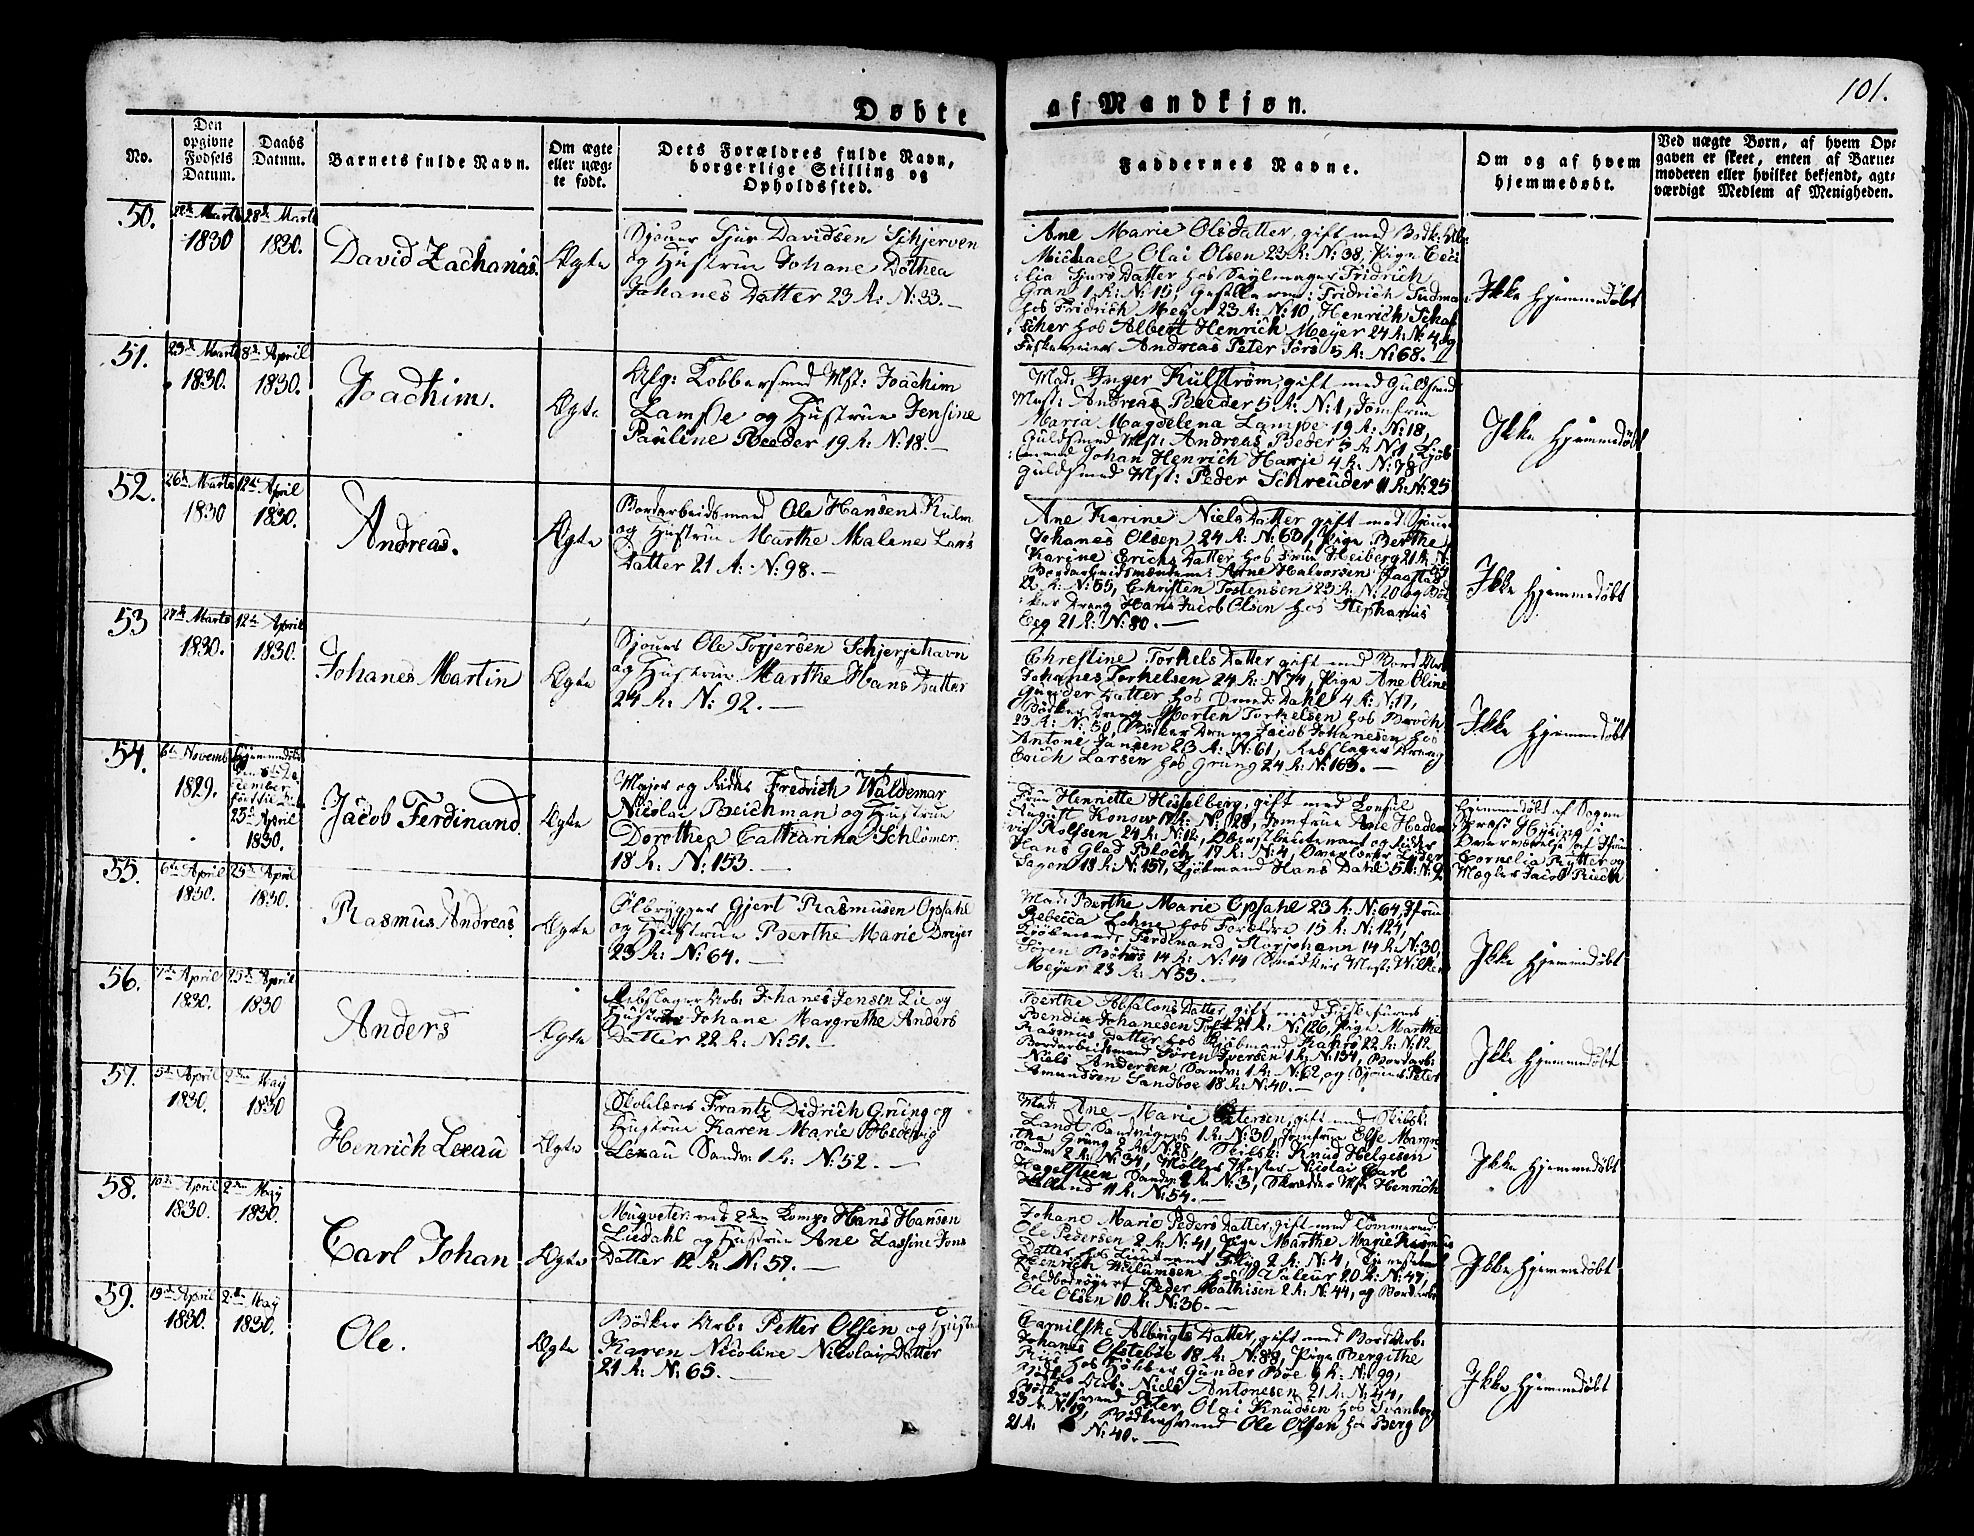 101.
Døbte af Mandkjøn.
No.
Den opgivne Fødsels Datum.
Daabs Datum.
Barnets fulde Navn.
Om ægte eller næg-te født.
Dets Forældres fulde Navn, borgerlige Stilling og Opholdssted.
Faddernes Navne.
Om og af hvem hjemmedøbt.
Ved uægte Børn, af hvem Op-gaven er skeet, enten af Barne-moderen eller hvilket bekjendt, agt-værdigt Medlem af Menigheden.
50.
Marts 1830
28de Marts 1830.
David Zacharias.
Ægte
Sjouer Sjur Davidsen Schjerven
og Hustrue Johane Dothea
Johanes Datter 23 R: N: 33.
Ane Marie Olsdatter, gift med
Michael Olai Olsen 23 R: N: 38, Pige Ceci-
lia Sjurs Datter hos Seylmager Fridrich
Gran 1 R: N: 15, Fridrich
hos Fridrich Meyer 23 R: N: 10, Henrich
hos Albert Henrich Meyer 24 R: N: 4, og
Andreas Peter Førs 5 R: N: 68.
Ikke Hjemmedøbt
51.
23de Marts 1830.
8de April 1830.
Joachim.
Ægte
Afg: Kobbersmed Mst: Joachim
Lampe og Hustrue Jensine
Pauline Reeder 19 R: N: 18.
Mad: Inger Kulstrøm, gift med Guldsmed
Mst: Andreas Reeder 5 R: N: 1, Jomfrue
Maria Magdelena Lampe 19 R: N: 18,
Guldsmed Mst: Andreas Reder 5 R: N: 1, Kjøb-
mand Johan Henrich Harje 4 R: N: 78
Guldsmed Mst: Peder Schreuder 11 R: N: 25
Ikke Hjemmedøbt
52.
26de Marts 1830
12te April 1830.
Andreas.
Ægte
Bordarbeidsmand Ole Hansen Kulm
og Hustrue Marthe Malene Lars
Datter 21 R: N: 98.
Ane Karine Niels Datter gift med Sjouer
Johanes Olsen, 24 R: N: 63, Pige Berthe
Karine Erichs Datter hos Frue Heiberg 21 R: N:
Bordarbeidsmændene: Arne Halvorsen
22 R: N: 55, Christen Tostensen 23 R: N: 20 og Bød-
ker Dreng Hans Jacob Olsen hos Stephanus
Eeg 21 R: N: 80.
Ikke Hjemmedøbt
53
27de Marts 1830.
12te April 1830.
Johanes Martin
Ægte
Sjouer Ole Torjersen Schjerjehavn
og Hustrue Marthe Hans Datter
24 R: N: 92.
Chrestine Torkels Datter gift med Bord Arb:
Johanes Torkelsen 24 R: N: 74, Pige Ane Oline
Gunder Datter hos Dahl 4 R: N: 17,
Bødker Dreng Morten Torkelsen hos Broch
23 R: N: 50, Bødker Dreng Jacob Johanesen hos
Antoni Jansen 23 R: N: 61, Rebslager Dreng
Erich Larsen hos Grung 24 R: N: 163.
Ikke Hjemmedøbt
54.
6te November 1829.
Hjemmedøbt
den 5te De-
cember
25de April
1830.
Jacob Ferdinand
Ægte
Major og Ridder Fredrich Waldemar
Nicolai Beichman og Hustrue
Dorothea Catharina Schlømer.
18 R: N: 153.
Frue Henriette Hesselberg, gift med Consul
August Konow 17 R: N: 28, Jomfrue Ane
Rolfsen 24 R: N: 12, Oberstlieutenant og Ridder
Hans Glad Bloch, 17 R: N: 4,
Sagen 18 R: N: 157, Kjøbmand Hans Dahl 5 R: N: 9.
Hjemmedøbt af Sogne
Præst i
Overværelse af Frue
Cornelia Rytter og
Mægler Jacob Rieck
55.
6te April 1830.
25de April 1830.
Rasmus Andreas.
Ægte
Ølbrygger Gjert Rasmusen Opsahl
og Hustrue Berthe Marie Dreyer
23 R: N: 64.
Mad: Berthe Marie Opsahl 23 R: N: 64, Jfrue
Rebecca Lohne hos Forældre 15 R: N: 124,
Kjøbmænd: Ferdinand Storjohann 14 R: N: 30,
Søren 14 R: N: 14 Mst: Wilhelm
Meyer 23 R: N: 53.
Ikke Hjemmedøbt
56.
7de April 1830.
25de April 1830
Anders
Ægte
Rebslager Arb: Johanes Jensen Lie og
Hustrue Johane Margrethe Anders
Datter 22 R: N: 51.
Berthe Absalons Datter, gift med
Bendix Johanesen 21 R: N: 126, Pige Marthe
Rasmus Datter hos Kjøbmand Kahrs 22 R: N: 12
Bordarbeidsmand Søren Iversen 1 R: N: 134, Bordarb:
Niels Andersen Sandv: 1 R: N: 62, og Sjouer Peter
Amundsen Sandboe 18 R: N: 40.
Ikke Hjemmedøbt
57.
5te April 1830.
2den May 1830
Henrich Lexau
Ægte
Skolelærer Frantz Didrich Grung og
Hustrue Karen Marie Hedevig
Lexau Sandv: 1 R: N: 52.
Mad: Ane Marie Petersen, gift med
Landt Sandvigens 1 R: N: 30, Jomfrue Else Margre-
tha Grung 2 R: N: 28, Knud Helgesen
Sandv: 2 R: N: 34, Nicolai Carl
Hagelsteen Sandv: 2 R: N: 3, Skrædder Mst: Henrich
11 R: N: 54.
Ikke Hjemmedøbt
58.
10de April 1830.
2den May 1830.
Carl Johan
Ægte
Musqueter ved 2den Komp: Hans Hansen
Liedahl og Hustrue Ane Zassine Jons
Datter 12 R: N: 57.
Johane Marie Peders Datter, gift med Tømmermd
Ole Pedersen 2 R: N: 41, Pige Marthe Marie Rasmus
Datter hos Lieutenant 2 R: N: 4,
Henrich Willumsen hos Valeur 20 R: N: 47,
Peder Mathisen 2 R: N: 44, og Bordarb:
Ole Olsen 10 R: N: 36.
Ikke Hjemmedøbt
59.
13de April 1830.
2den May 1830.
Ole.
Ægte
Bødker Arb: Petter Olsen og Hustrue
Karen Nicoline Nicolai Datter
21 R: N: 65.
Albrigts Datter, gift med Bord Arb:
Johanes Ofsteboe 18 R: N: 88, Pige Bergithe
hos Gunder Boe 9 R: N: 99,
Bødker Arb: Niels Antonesen 21 R: N: 44,
Bødkersvend Peter Olai Knudsen hos Svanberg
23 R: N: 19, Bødkersvend Ole Olsen hos Berg
21 R: N: 40.
Ikke Hjemmedøbt